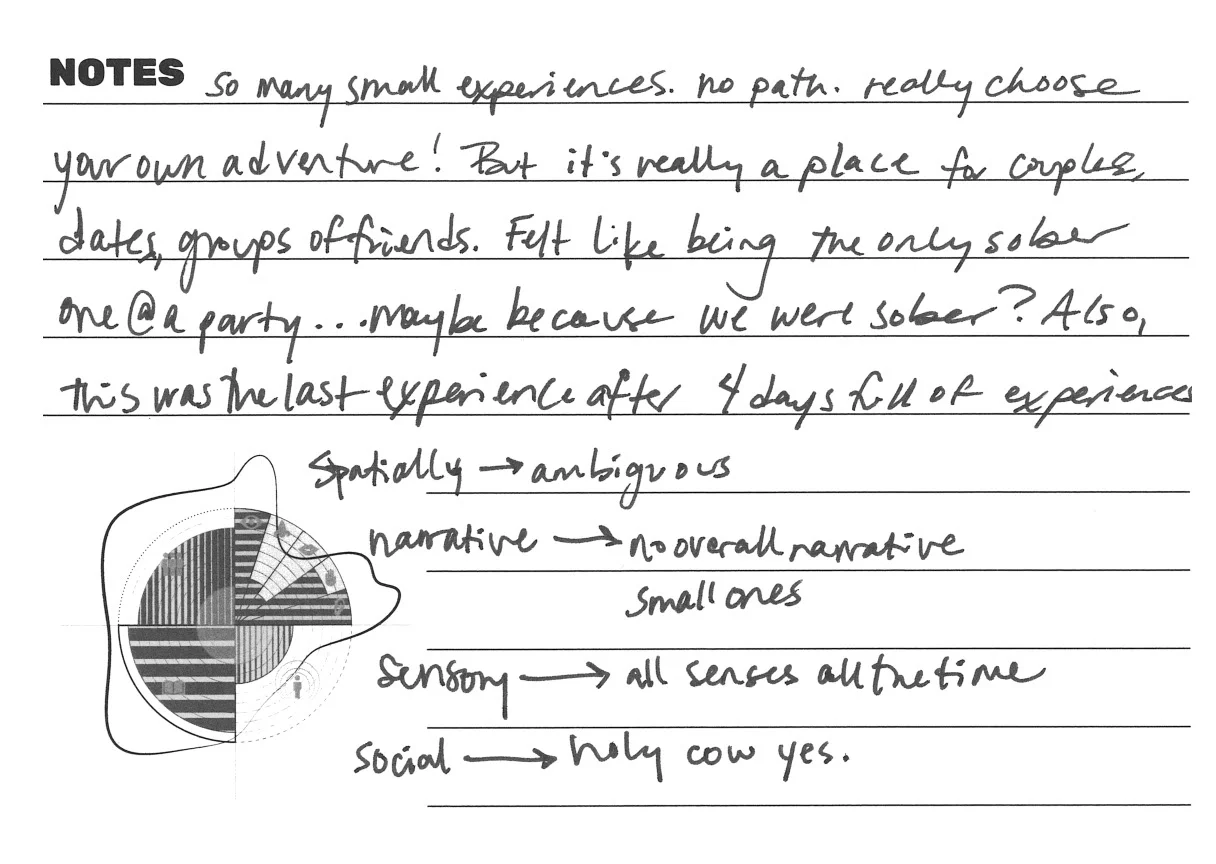 NOTES so many small experiences. no path. really choose
your own adventure! But it's really a place for couples,
dates, groups of friends. Felt like being the only sober
one @ a party... maybe because we were sober? Also,
this was the last experience after 4 days full of experiences
Spatially → ambiguous
narrative → no overall narrative
small ones
Sensory → all senses all the time
social → holy cow yes.